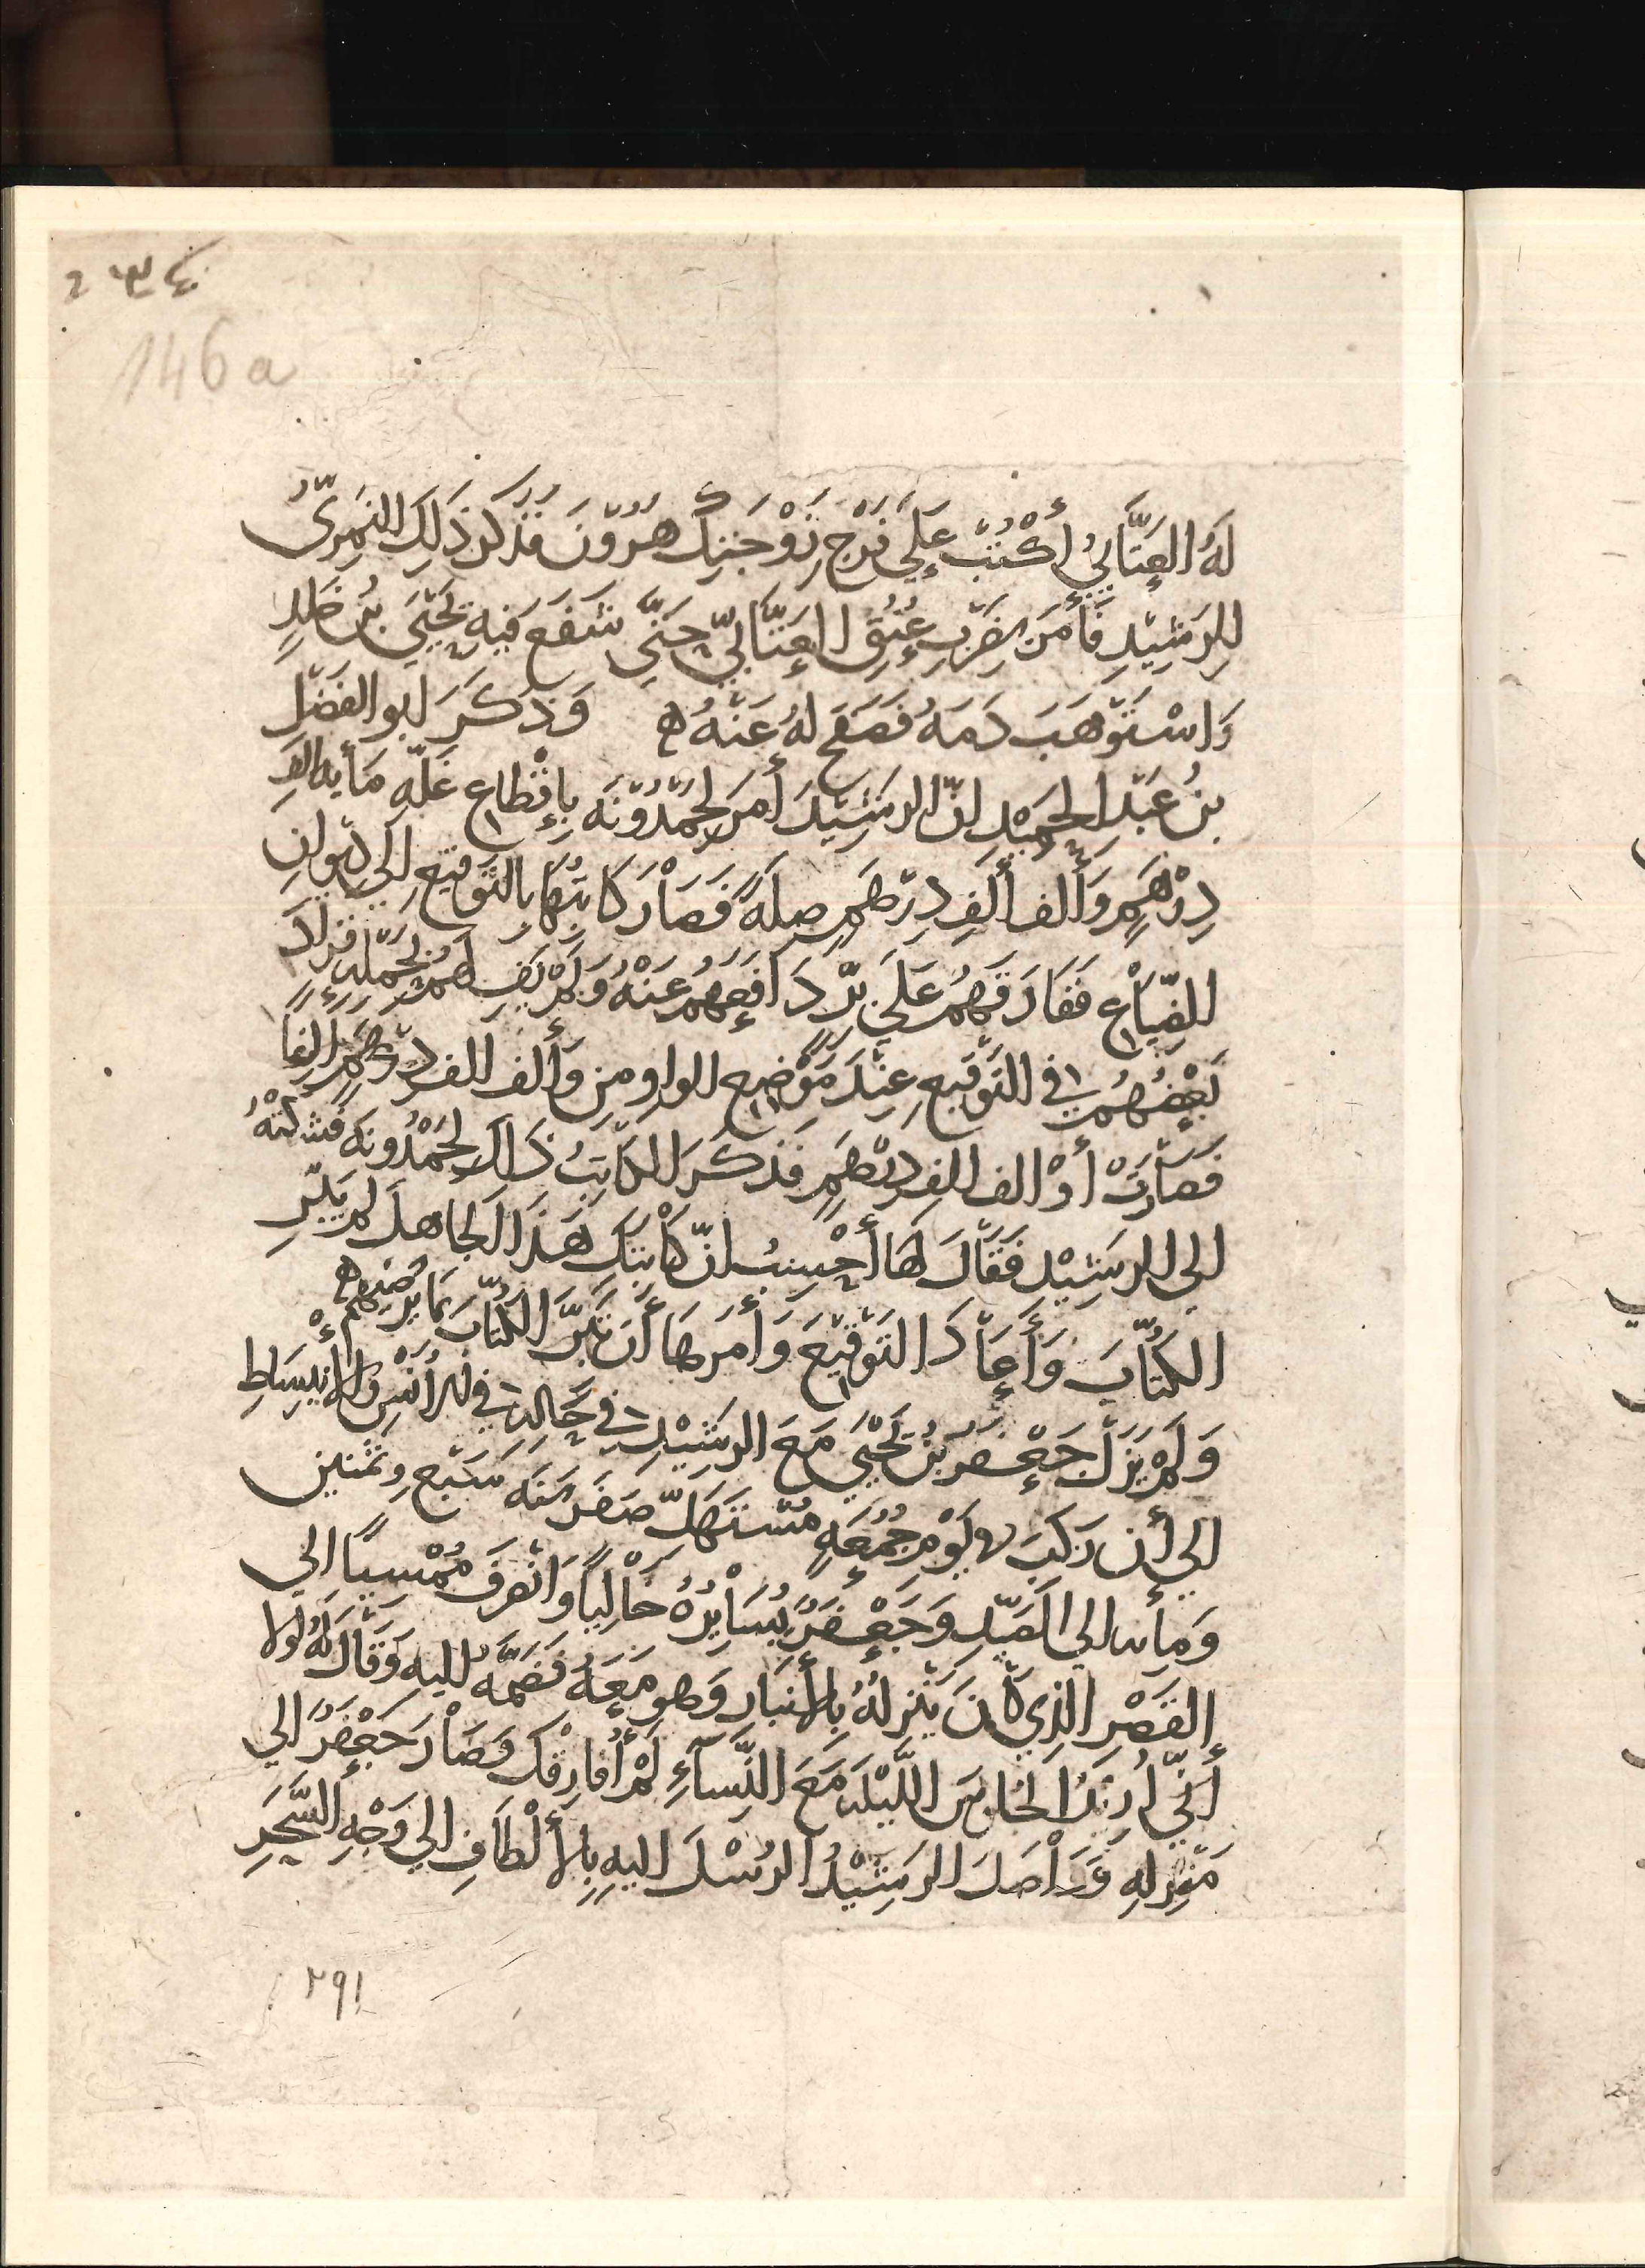 146a
لَهُ العَتَّابيُّ أُكْتُبْ عَلَى فَرْج زَوْجَتِكَ هرُوْنَ فذكر ذَلِكَ النمِريّ
للرشِيْدِ فَأَمَرَ بضَرْبِ عُنُقِ العَتَّابيّ حتَّى شَفَع فيهِ يَحْيَى بنُ خلدٍ
وَاسْتَوْهَبَ دَمَهُ فصَفَح لهُ عَنْهُ ه وَذَكَرَ ابو الفَضْل
بنُ عَبْدِ الحَمِيْدِ انّ الرشِيْدَ أَمَرَ لحَمْدُوْنَةَ بإقْطاع غلّه مَأيه الفِ
دِرْهَمٍ وَأَلف ألفِ دِرْهَمٍ صِلَةً فصَاْرَ كَاتِبُهَا بالتَوْقيعِ الَى دِيوانِ
الضِّيَاْعِ ففَارَقَهُمْ عَلَى بِرّ دَافَعَهُم عَنْهُ وَلَمْ يَفِ لَهمْ بحَمْلِهِ فزَادَ
بَعْضُهُمْ في التَوْقيعِ عِنْدَ مَوْضِعِ الواوِ من وَأَلف الف دِرْهَمٍ الِفاً
فصَاْرَتْ أَوْ الف الف دِرْهَمٍ فذكَرَ الكَاتِبُ ذَاكَ لحَمْدُونَه فشكَتْهُ
الى الرشِيْدِ فقَالَ لهَا أَحْسِبُ انّ كَاْتِبَكِ هَذَا الجَاهلَ لم يَبَرّ
الكُتّابَ وَأَعَاْدَ التَوْقيْعَ وَأَمَرهَا أَن تَبَرَّ الكُتّابَ بمَا يُرْضِيهمْ ه
وَلَمْ يَزَلْ جَعْفَر بنُ يَحْيَى مَعَ الرشِيْدِ في حَالِهِ في الأُنْسِ والإنبِسَاطِ
الي أَن رَكِبَ في يَوْم جُمُعَةٍ مُسْتَهَلّ صَفَر سَنَه سَبْع وثمنين
وَمأيه الي الصَيْدِ وَجَعْفَرٌ يُسَاْيِرُهُ خَالِياً وَانْصرَفَ مُمْسِياً الي
القَصْرِ الذي كَانَ يَنْزِلُهُ بالأَنْبَارِ وَهو مَعَهُ فضَمّهُ اليهِ وَقَالَ لَهُ لولا
أَنّي أُرِيْدُ الجُلوسَ اللَّيْلَهَ مَعَ النِّسَاءِ لَمْ أُفَارِقْك وَصَاْرَ جَعْفَرٌ الي
مَنْزِلهِ وَوَاصَلَ الرشِيْدُ الرُسْلَ اليهِ بالأَلْطَافِ الي وَجْهِ السَّحَرِ
٢٩١